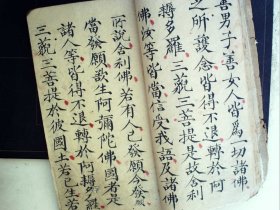 善男子善女人皆為一切諸佛
之所護念皆得不退轉於阿
耨多羅三藐三菩提是故舍利
佛汝等皆當信受我語及諸佛
所說舍利佛若有人已發願今發願
當發願欲生阿彌陀佛國者是
諸人等皆得不退轉於阿耨多羅
三藐三菩提於彼國土若已生若